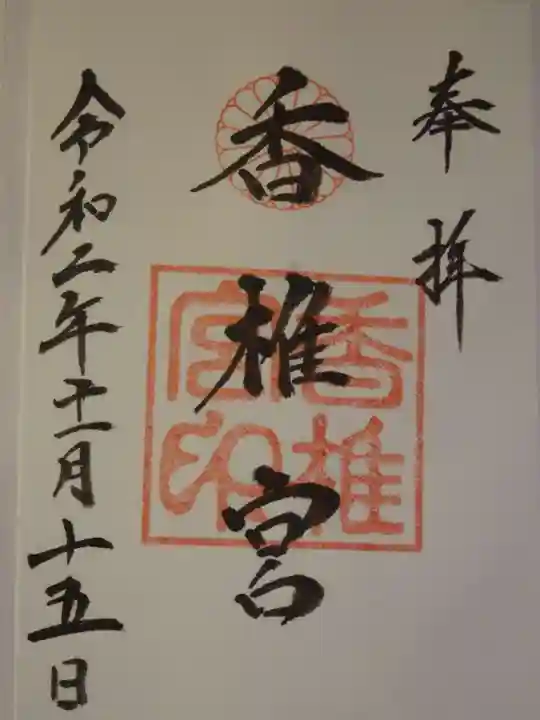 奉拝
香椎宮
香椎宮印
令和二年十一月十五日